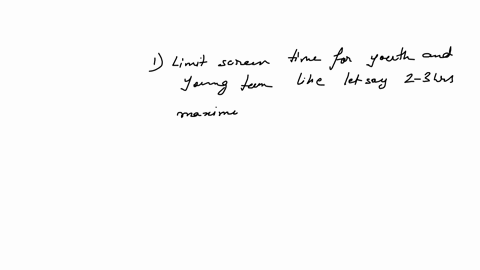 1) Limit screen time for youth and
young teen like let say 2-3 hrs
maxime